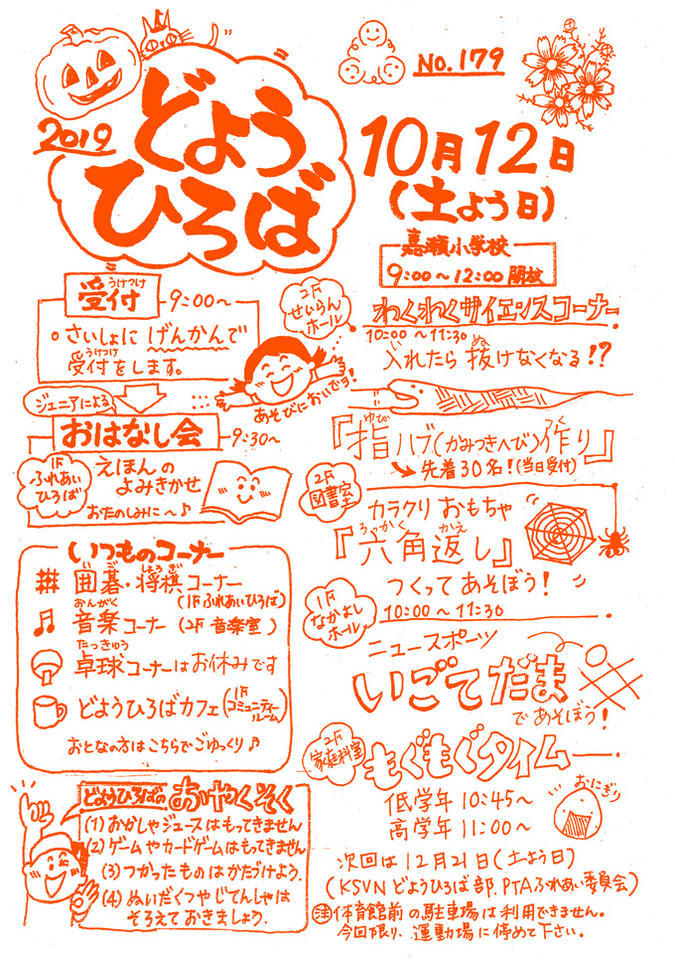 No.179
2019
どようひろば
10月12日
(土よう日)
嘉瀬小学校
9:00〜12:00 開放
受付 9:00〜
うけつけ
○さいしょに げんかんで
受付をします。
うけつけ
2F せいらんホール
あそびにおいでヨ!
ジュニアによる
おはなし会 9:30〜
1F ふれあいひろば
えほんの
よみきかせ
おたのしみに〜♪
いつものコーナー
囲碁・将棋コーナー
いご しょうぎ
(1Fふれあいひろば)
おんがく
音楽コーナー (2F 音楽室)
たっきゅう
卓球コーナーはお休みです
どようひろばカフェ(1Fコミュニティールーム)
おとなの方はこちらでごゆっくり♪
どようひろばの おやくそく
(1)おかしやジュースはもってきません
(2)ゲームやカードゲームはもってきません
(3)つかったものはかたづけよう.
(4)ぬいだくつやじてんしゃは
そろえておきましょう.
わくわくサイエンスコーナー
10:00〜11:30
い ぬ
入れたら 抜けなくなる!?
ゆび つく
『指ハブ(かみつきへび)作り』
先着30名!(当日受付)
2F 図書室
カラクリ おもちゃ
ろっかく かえ
『六角返し』
つくってあそぼう!
10:00〜11:30
1F なかよしホール
ニュースポーツ
いごてだま
であそぼう!
2F 家庭科室
もぐもぐタイム
おにぎり
低学年 10:45〜
高学年 11:00〜
次回は12月21日(土よう日)
(KSVN どようひろば部.PTAふれあい委員会)
注 体育館前の駐車場は利用できません。
今回限り、運動場に停めて下さい。